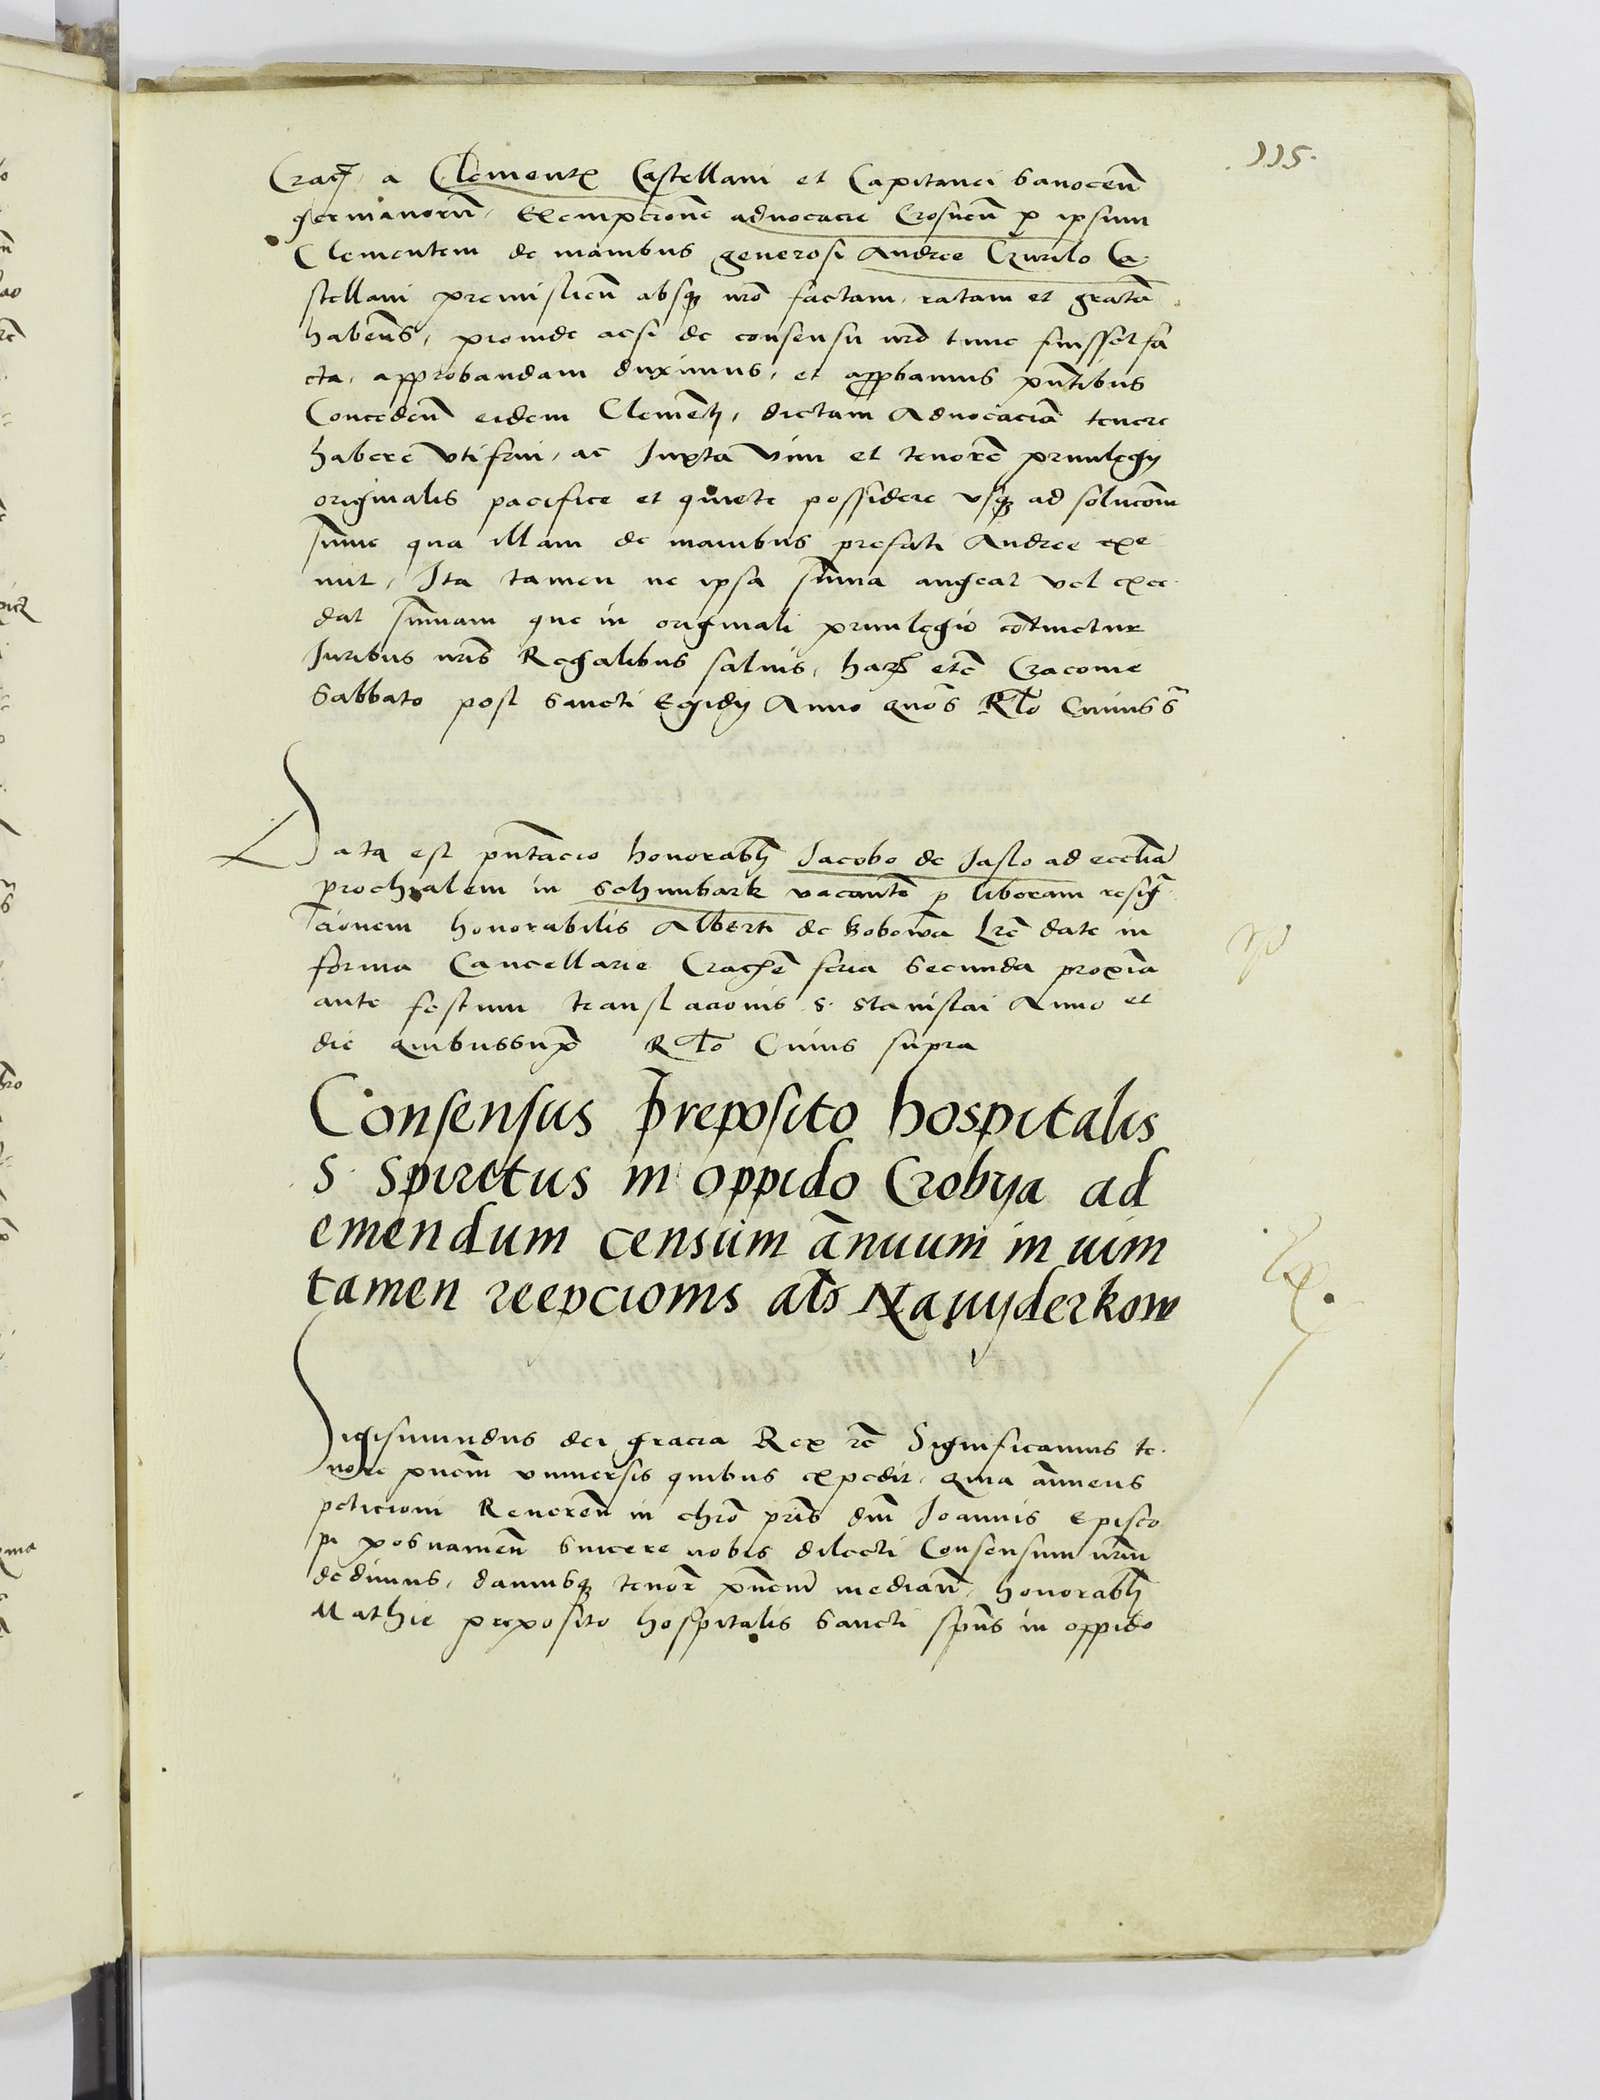 115.
Crac. a Clemente Castellani et Capitanei Sanocen
germanorum, Exempcione aduocacie Crosnen p ipsum
Clementem de manibus generosi Andree Czurilo Ca
stellani premislien absq nro factam, ratam et gratam
habens, proinde acsi de consensu nro tunc fuisset fa
cta, approbandam duximus, et approbamus pntibus
Conceden eidem Clementi, dictam Aduocaciam tenere
habere vtifrui, ac Iuxta vim et tenorem priuilegij
originalis pacifice et quiete possidere vsq ad solucom
summe qua illam de manibus prefati Andree exe
mit, Ita tamen ne ipsa summa augeat vel exce
dat summam que in originali priuilegio continetur
Iuribus nris Regalibus saluis, harz etc Cracouie
Sabbato post sancti Egidij Anno quo s Rlo Cuiuss
Data est pntacio honorabli Iacobo de Iaslo ad eccliam
prochialem in Schimbark vacante p liberam resig
cionem honorabilis Alberti de Bobowa Lre date in
forma Cancellarie feria secunda proxia
ante festum translacionis s. stanislai Anno et
die quibussup Rlo Cuius supra
Consensus Preposito hospitalis
s. spiritus in oppido Crobya ad
emendum censum anuum in uim
tamen reepcionis als Nauyderkow
Sigismundus dei gracia Rex etc Significamus te
nore pncm vniuersis quibus expedit, quia annuens
peticioni Reueren in chro pris dni Ioannis Episco
pi posnanien sincere nobis dilecti Consensum nrum
dedimus, damusq tenor pncm median, honorabli
Mathie preposito hospitalis sancti spus in oppido